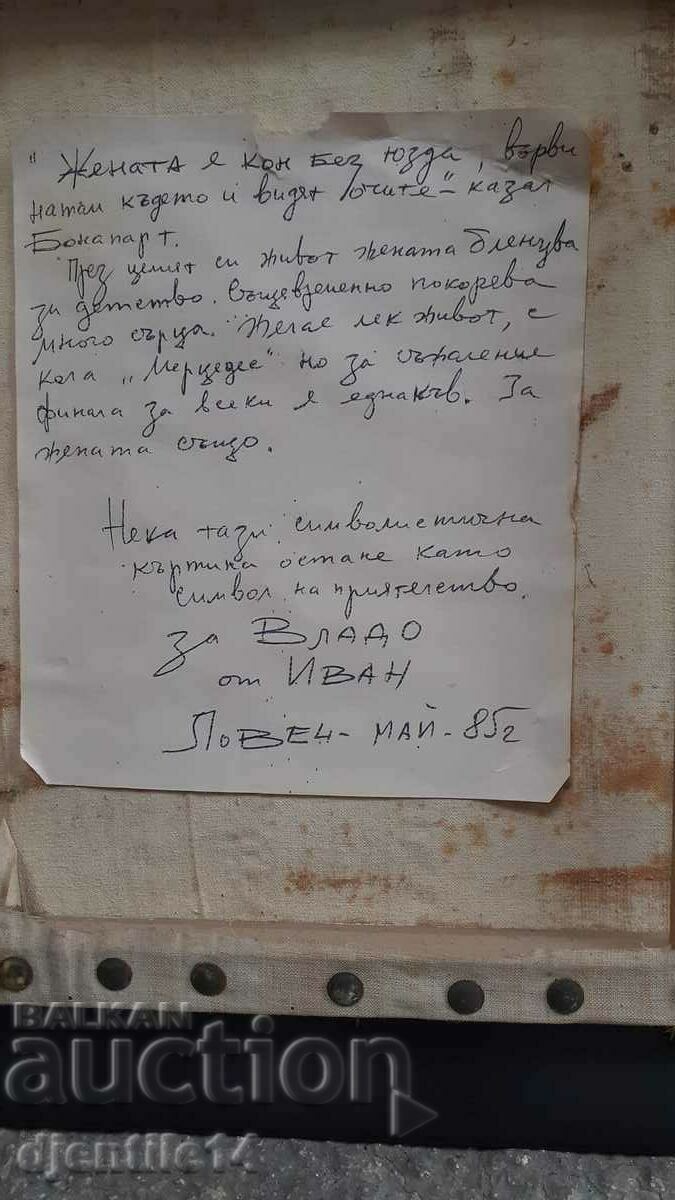 "Жената е кон без юзда, върви
натам където и видят очите" - казал
Бонапарт.
През целият си живот жената бленува
за детство. Същевременно покорева
много сърца. Желае лек живот, с
кола „Мерцедес" но за съжаление
финала за всеки е еднакъв. За
жената също.
Нека тази символистична
къртина остане като
символ на приятелство.
за Владо
от Иван
Ловеч - май - 85г
BALKAN
auction
djentile14